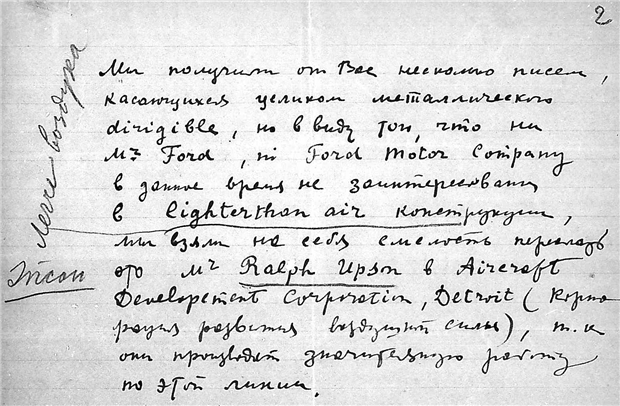 2
Мы получили от Вас несколько писем,
касающихся целиком металлического
dirigible, но в виду того, что ни
Mr Ford, ni Ford Motor Company
в данное время не заинтересованы
в lighter than air конструкции,
мы взяли на себя смелость передать
это Mr Ralph Upson в Aircraft
Developement Corporation, Detroit (Корпо
рация развития воздушной силы), т.к
они производят значительную работу
по этой линии.
Легче воздуха